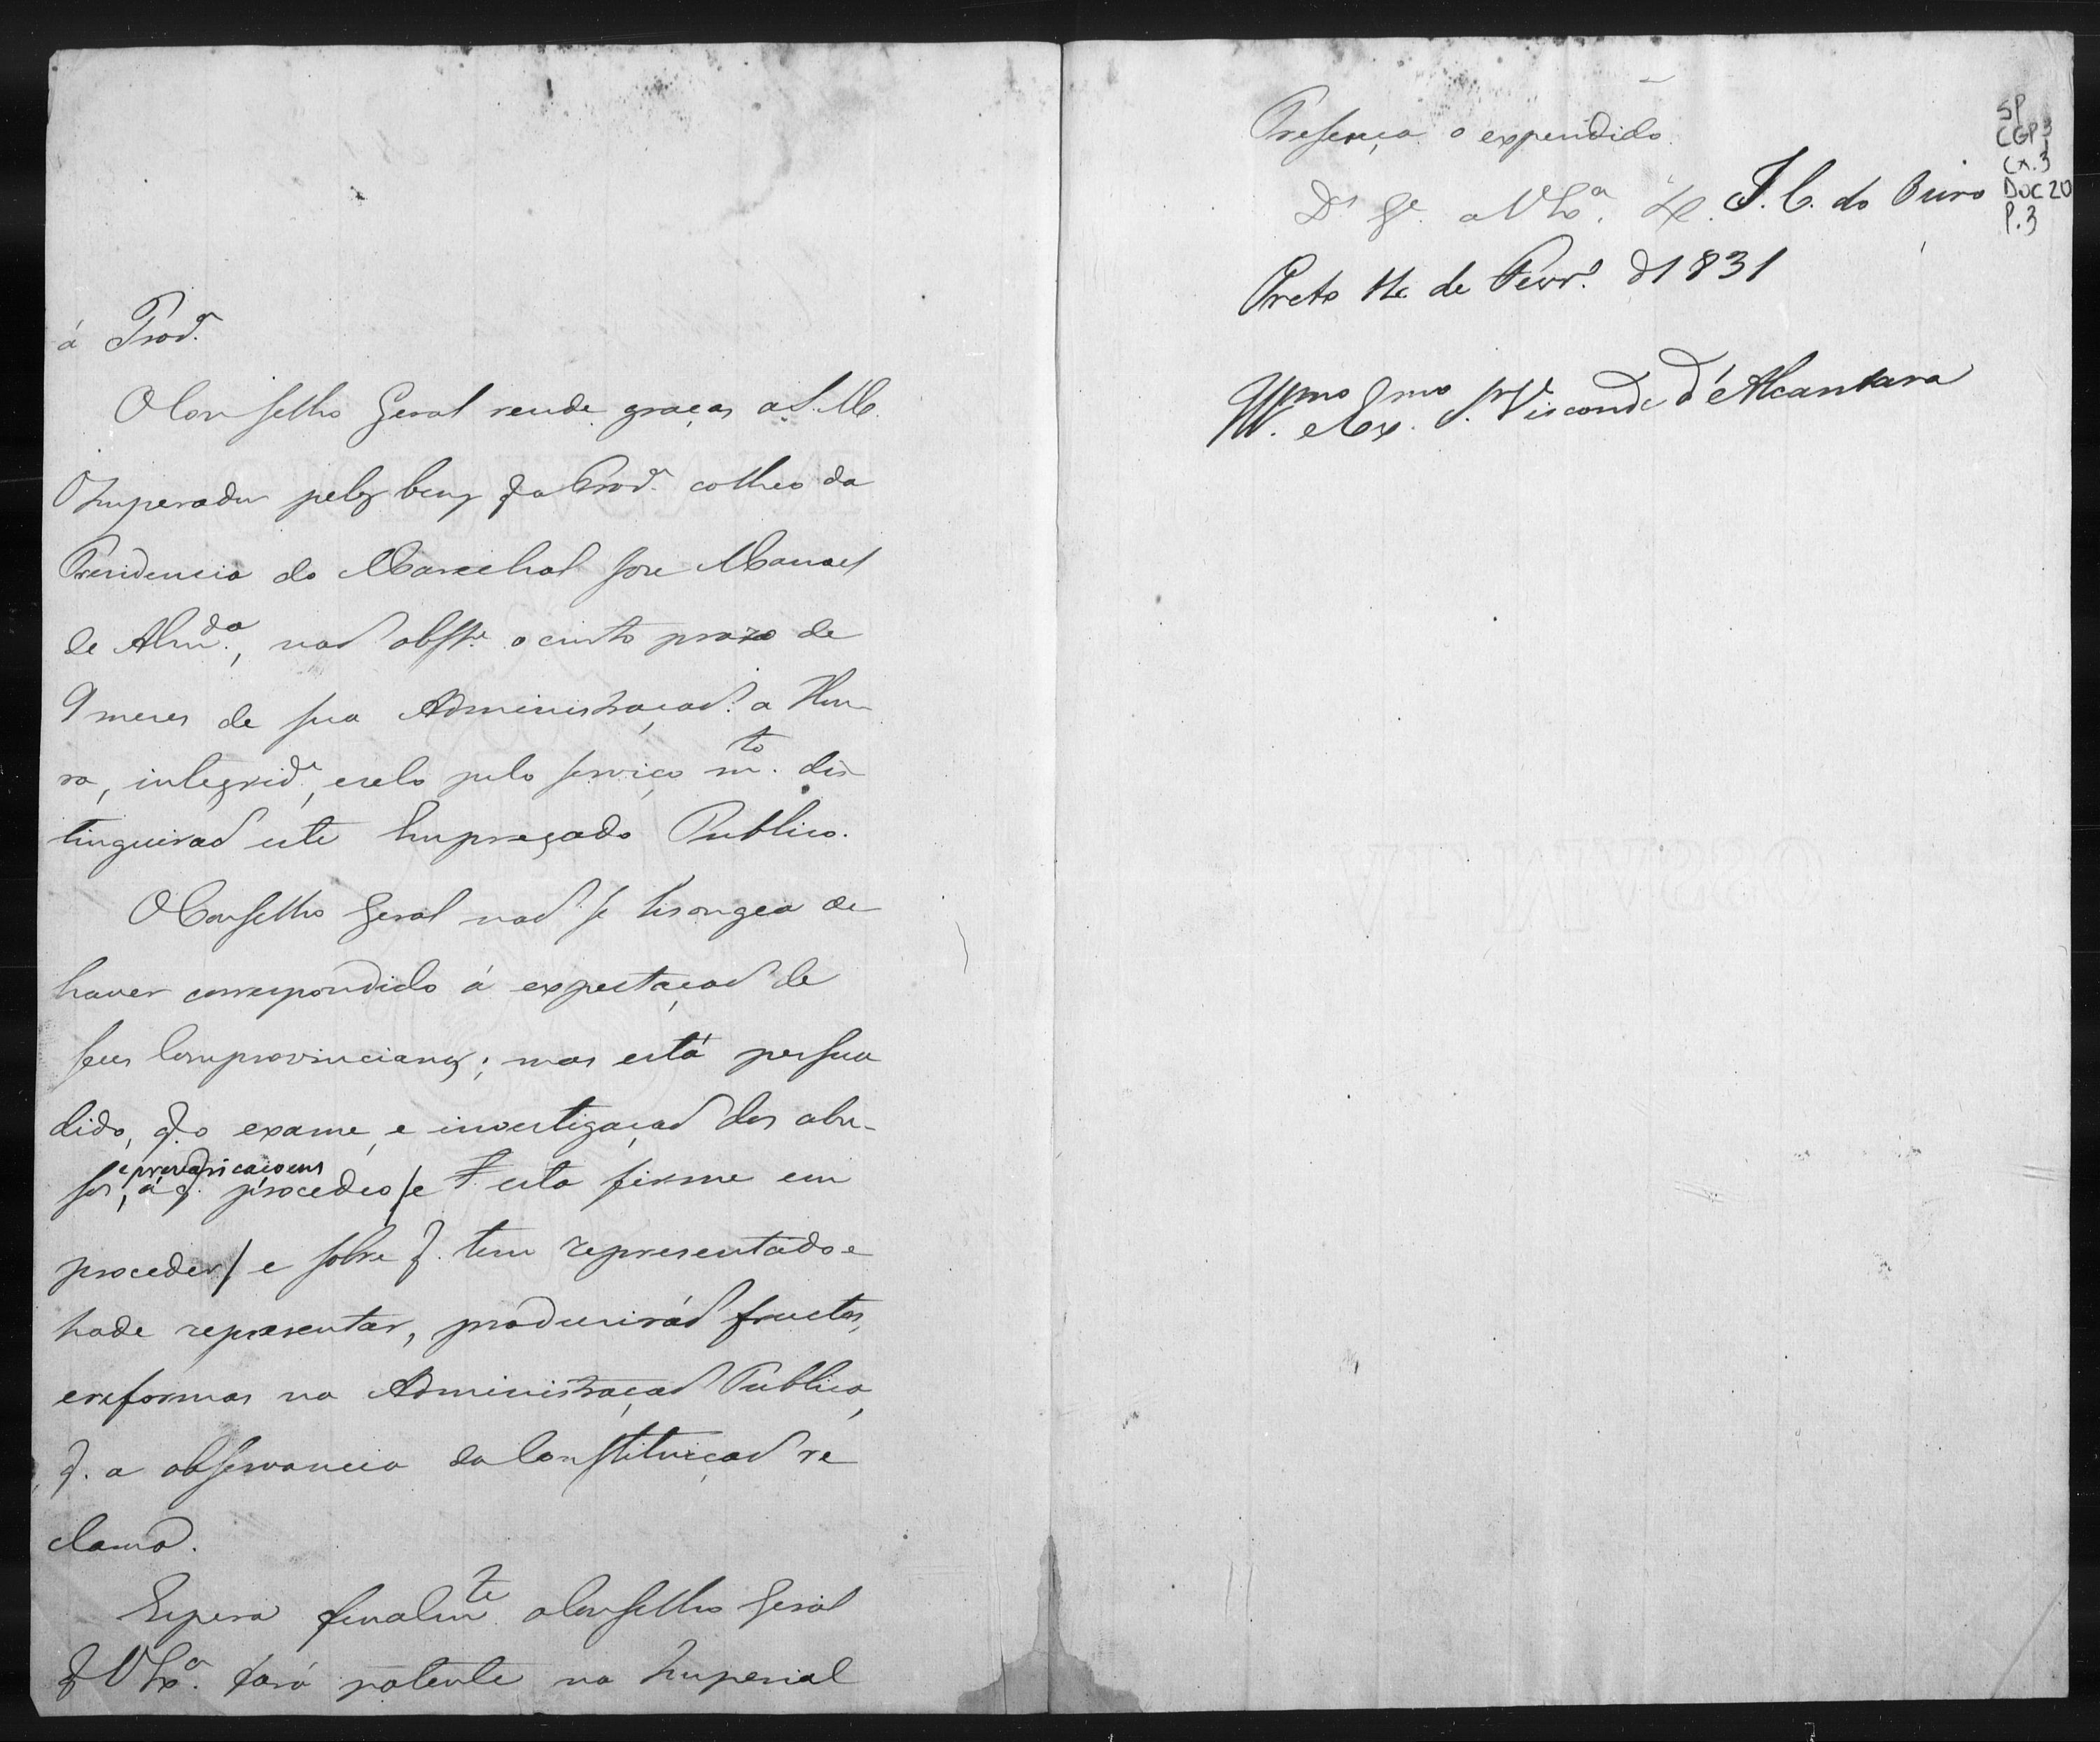 á Prov.ª
O Conselho Geral rende graças a S. M.
O Imperador pelos bens q̃ a Prov.ª colheo da
Presidencia do Marechal Jose Manoel
de Alm.da, naõ obst.e o curto prazo de
9 mezes de sua Administraçaõ: a Hon-
ra, integrid.e, e zelo pelo serviço m.to dis-
tinguiraõ este Empregado Publico.
O Conselho Geral naõ se lisongea de
haver correspondido á expectaçaõ de
seus Comprovincianos; mas está persua
dido, q. o exame, e investigaçaõ dos abu-
sos, e prevaricaçoens á q. procedeo / e está firme em
proceder / e sobre q. tem representado e
hade representar, produziráõ fructos,
e reformas na Administraçaõ Publica,
q. a observancia da Constituiçaõ re
clama.
Espera finalm.te o Conselho Geral
q̃ V Ex.ª fará patente na Imperial
Presença o expendido.
D.s G.e a V Ex.ª P. do C. do Ouro
Preto de Fevr.o d 1831
Ill.mo e Ex.mo S.r Visconde d'Alcantara
SP
CGP3
CX.3
DOC 20
P.3